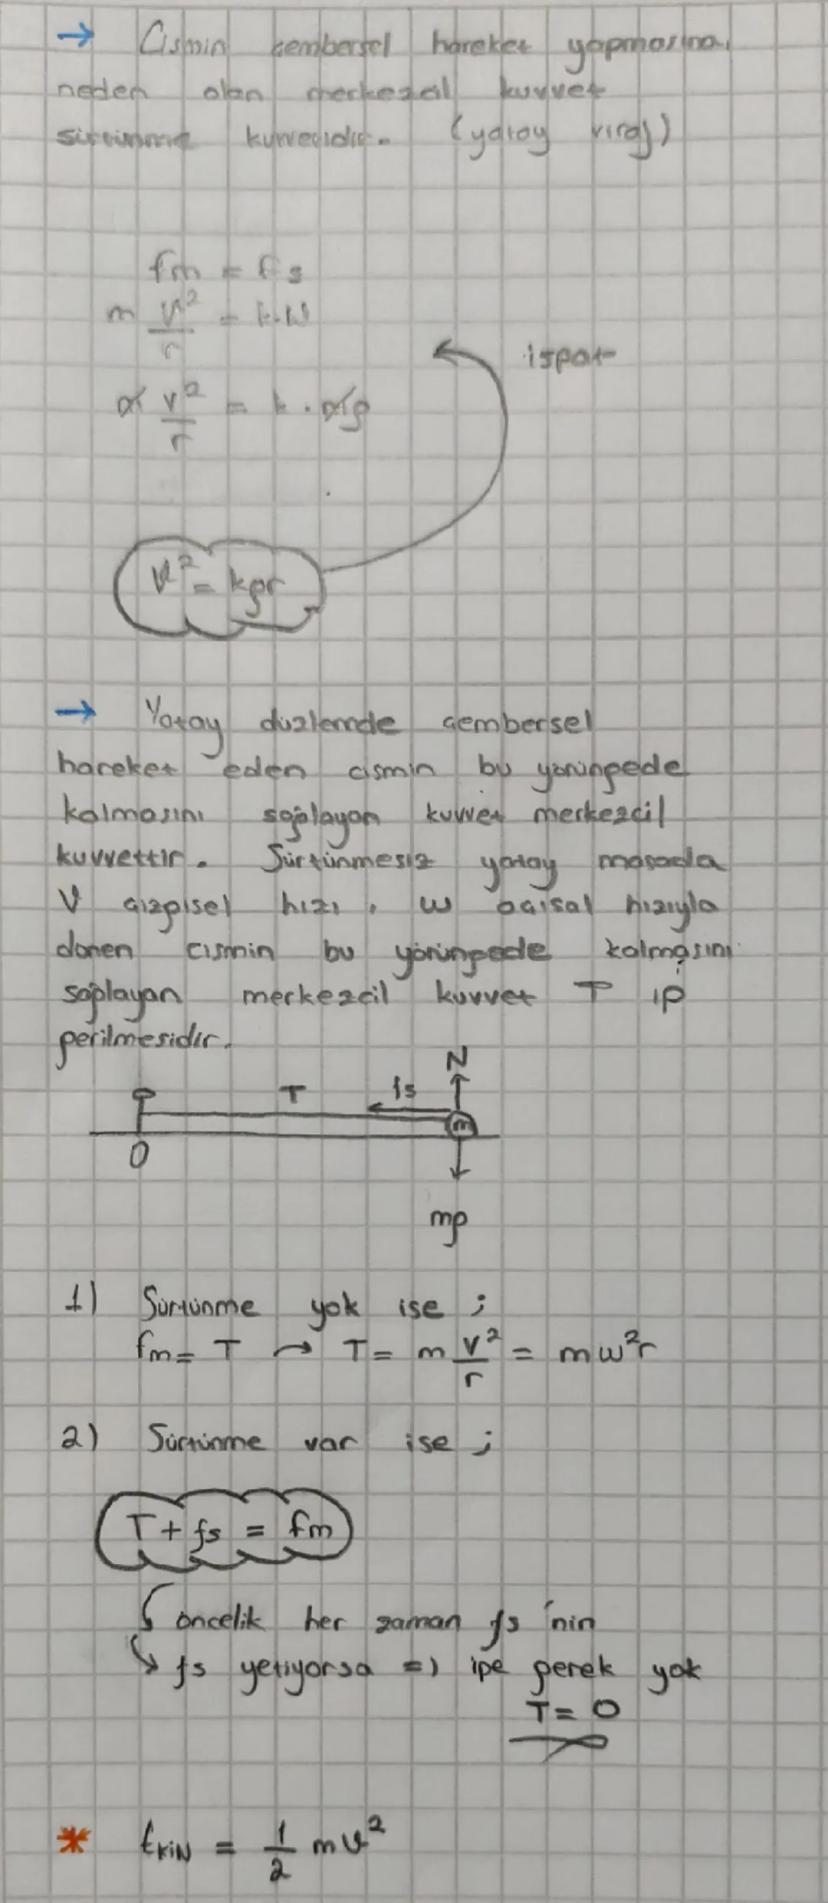 → Cismin çembersel hareket yapmasına
neden olan merkezcil kuvvet
sürtünme kuvvetidir. (yatay viraj)
fm = fs
m v²/r = k.W
m v²/r = k . mg
ispat
V² = kgr
→ Yatay düzlemde çembersel
hareket eden cismin bu yörüngede
kalmasını sağlayan kuvvet merkezcil
kuvvettir. Sürtünmesiz yatay masada
V çizgisel hızı, w açısal hızıyla
dönen cismin bu yörüngede kalmasını
sağlayan merkezcil kuvvet T ip
gerilmesidir.
N
T fs
m
O
mg
1) Sürtünme yok ise ;
fm = T → T = m v²/r = mw²r
2) Sürtünme var ise ;
T + fs = fm
öncelik her zaman fs'nin
↳ fs yetiyorsa => ipe gerek yok
T = 0
* EKİN = 1/2 mv²